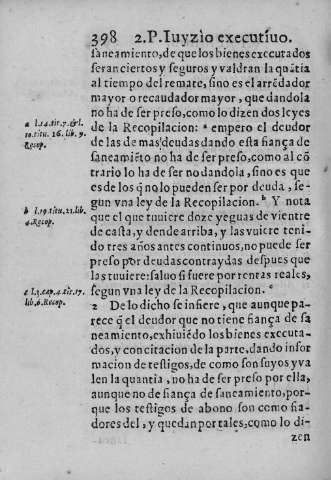 398 2.P.Iuyzio executiuo.
saneamiento, de que los bienes executados
seran ciertos y seguros y valdran la quãtia
al tiempo del remate, sino es el arrẽdador
mayor o recaudador mayor, que dandola
no ha de ser preso, como lo dizen dos leyes
de la Recopilacion: ª empero el deudor
de las de mas deudas dando esta fiança de
saneamiẽto no ha de ser preso, como al cõ
trario lo ha de ser no dandola, sino es que
es de los q̃ no lo pueden ser por deuda, se-
gun vna ley de la Recopilacion. ᵇ Y nota
que el que tuuiere doze yeguas de vientre
de casta, y dende arriba, y las vuiere teni-
do tres años antes continuos, no puede ser
preso por deudas contraydas despues que
las tuuiere: saluo si fuere por rentas reales,
segun vna ley de la Recopilacion. ᶜ
2 De lo dicho se infiere, que aunque pa-
rece q̃ el deudor que no tiene fiança de sa
neamiento, exhiuiẽdo los bienes executa-
dos, y con citacion de la parte, dando infor
macion de testigos, de como son suyos y va
len la quantia, no ha de ser preso por ella,
aunque no de fiança de saneamiento, por-
que los testigos de abono son como fia-
dores del, y quedan por tales, como lo di-
zen
a l.14.tit.7. & l.
10.titu.16.lib.9.
Recop.
b l.19.titu.21.lib.
4.Recop.
c l.3.cap.4.tit.17.
lib.6.Recop.